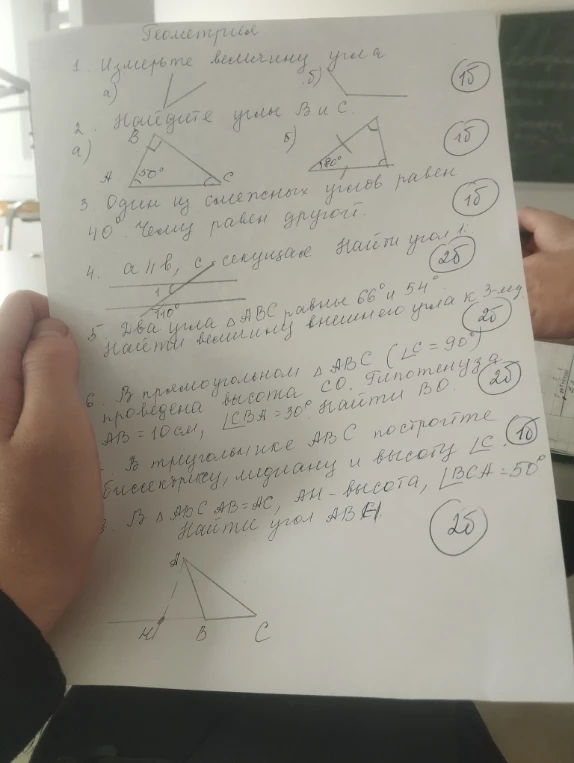 Геометрия
1. Измерьте величину угла
а) б) 1б
2. Найдите углы В и С.
а) б) 1б
В
А 50° С
80°
3. Один из смежных углов равен
40°. Чему равен другой. 1б
4. а || в, с - секущая Найти угол 1. 2б
1
110°
5. Два угла △ АВС равны 66° и 54°.
Найти величину внешнего угла к 3-му. 2б
6. В прямоугольном △ АВС (∠С = 90°)
проведена высота СО. Гипотенуза
АВ = 10 см, ∠СВА = 30° Найти ВО. 2б
В треугольнике АВС постройте
биссектрису, медиану и высоту ∠С. 1б
В △ АВС АВ = АС, АН - высота, ∠ВСА = 50°
Найти угол АВН. 2б
А
Н В С